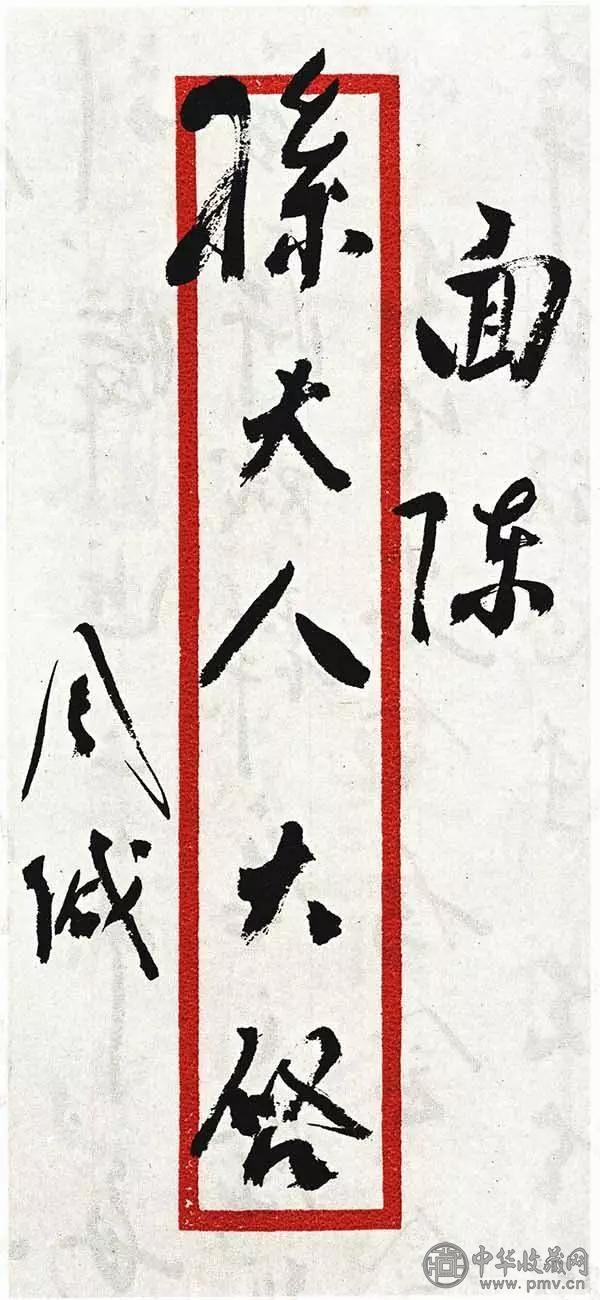 面陳
孫大人大啓
周緘
中华收藏网
www.pmv.cn